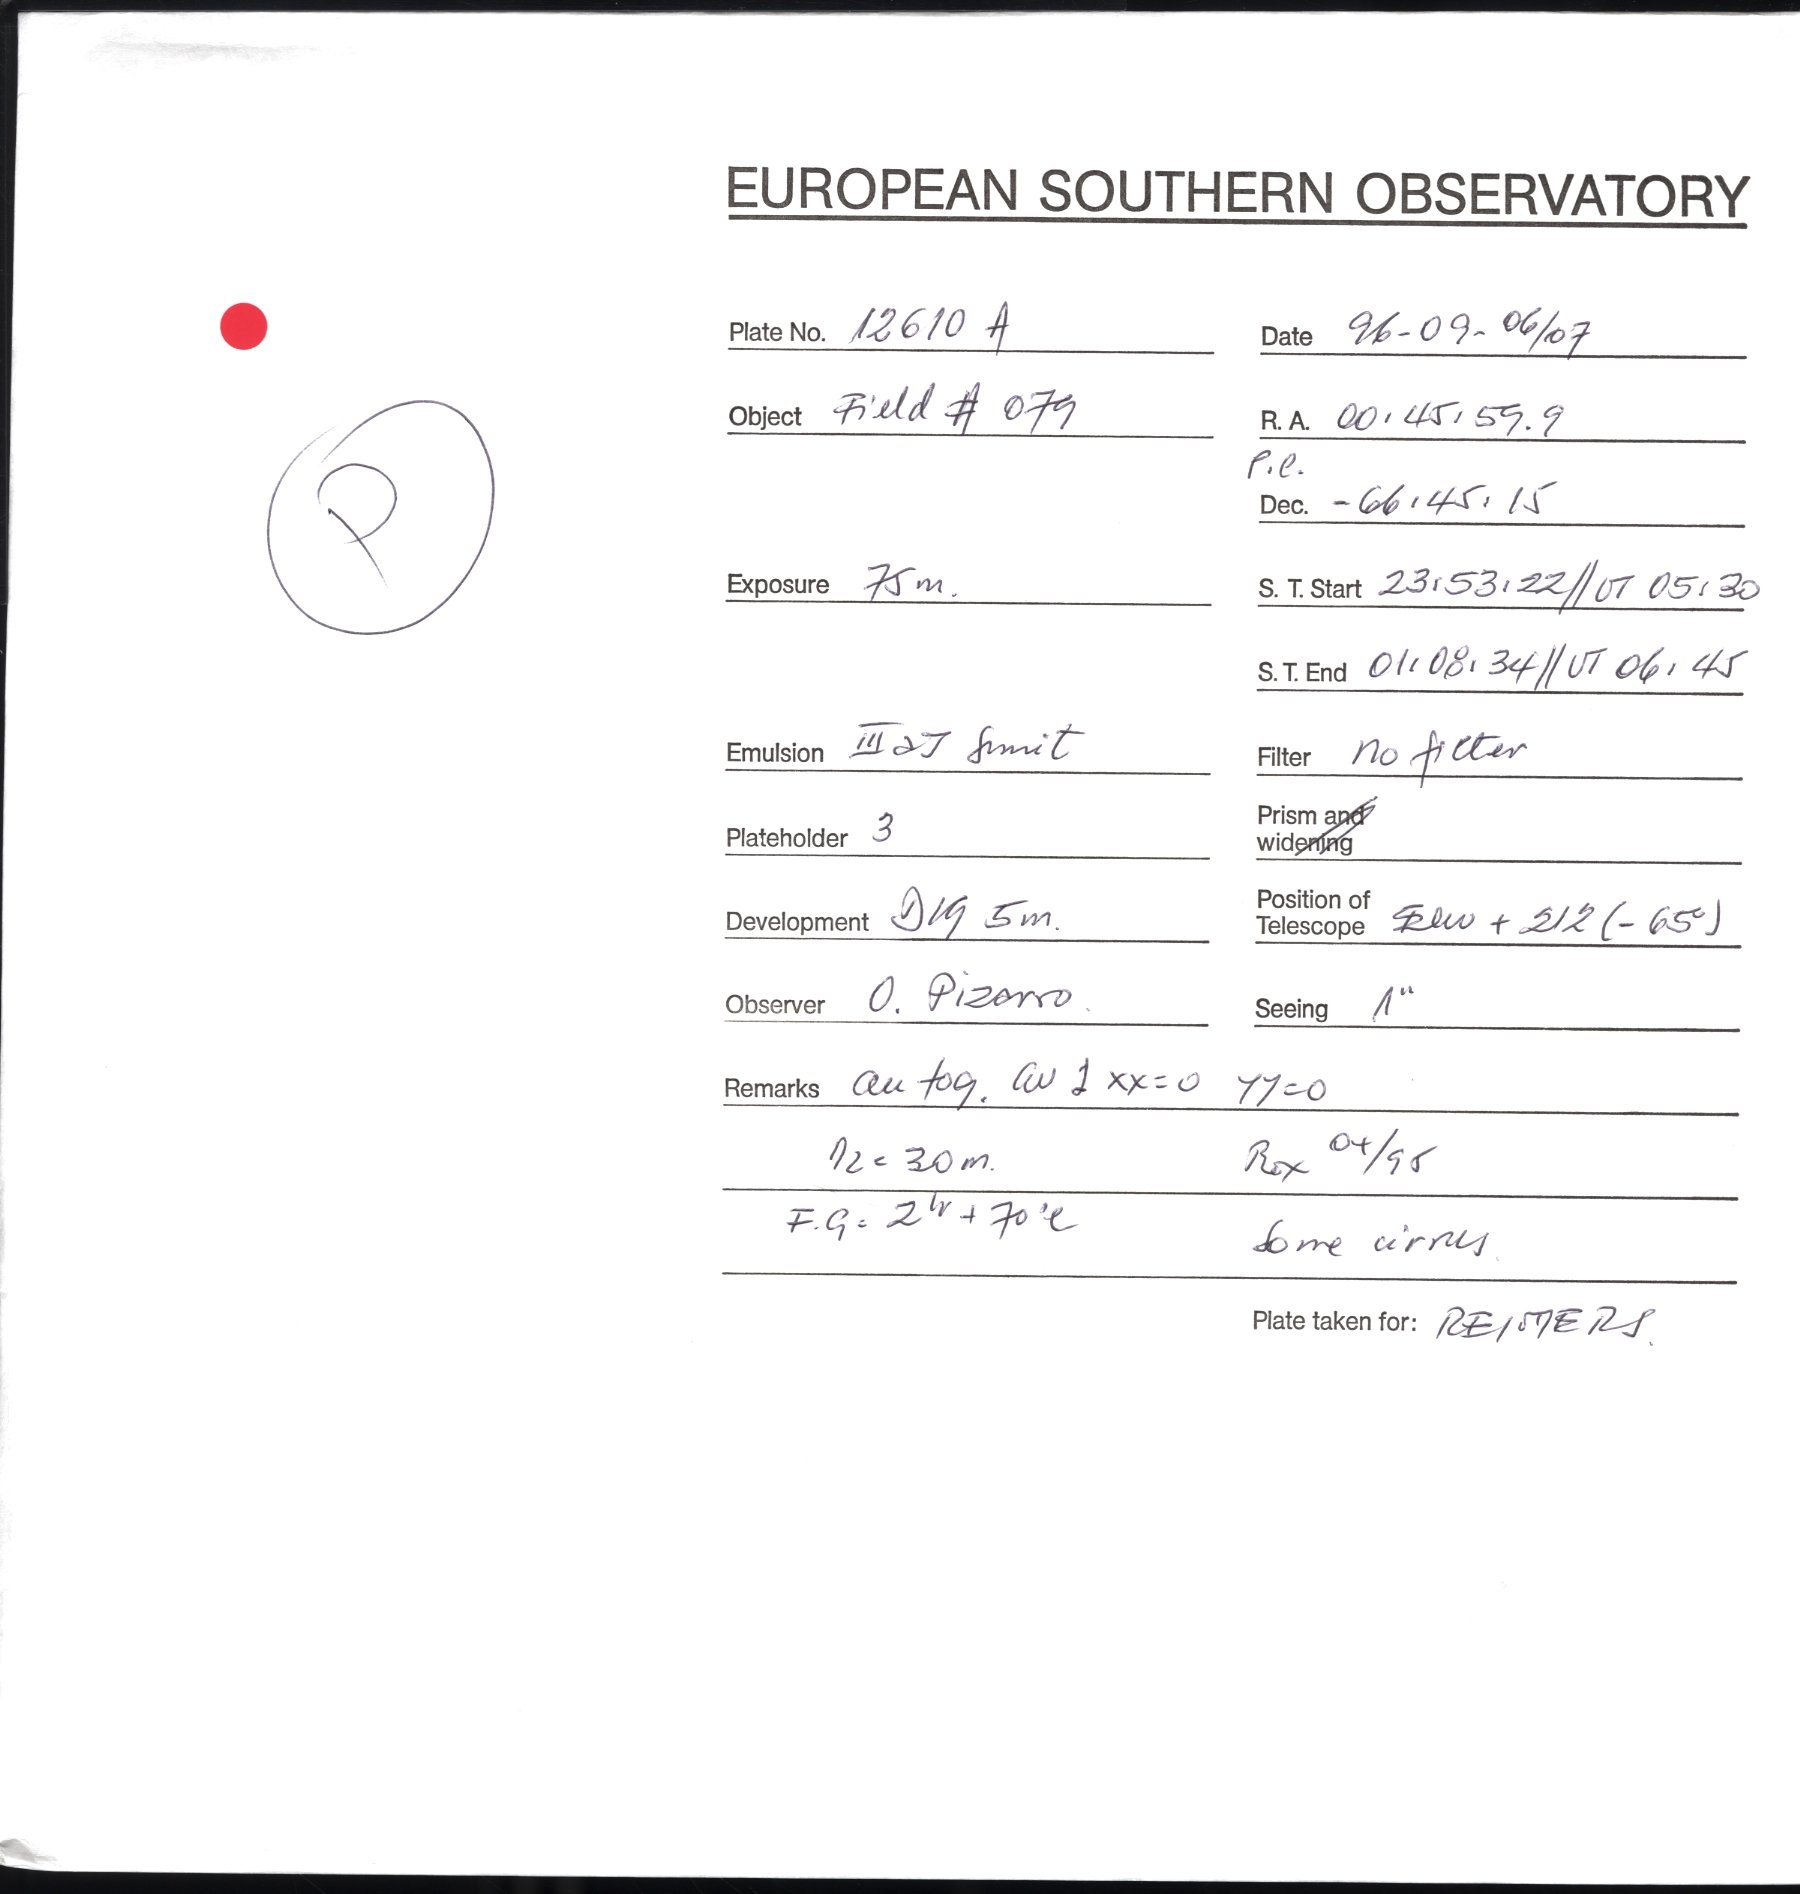 EUROPEAN SOUTHERN OBSERVATORY
Plate No. 12610 A
Date 96-09-06/07
Object Field # 079
R. A. 00:45:59.9
P
P.C.
Dec. -66:45:15
Exposure 75m.
S. T. Start 23:53:22//UT 05:30
S. T. End 01:08:34//UT 06:45
Emulsion III aJ
Filter no filter
Plateholder 3
Prism and widening
Development D19 5m.
Position of Telescope + 212 (-65°)
Observer O. Pizarro.
Seeing 1"
Remarks autog. xx=0 yy=0
= 30m.
04/95
F.G= 2hr + 70°C
Some cirrus.
Plate taken for: REISTERS.